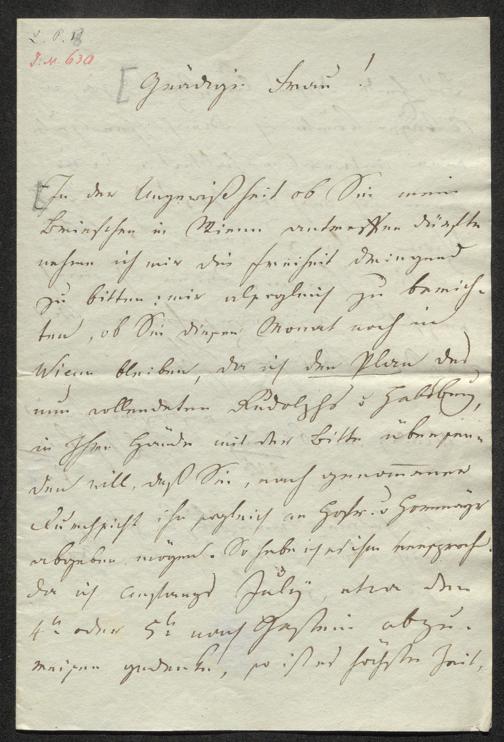 I. N. 630
[ Gnädige Frau!
[ In der Ungewißheit ob Sie mein
Briefchen in Wien antreffen dürfte
nehme ich mir die Freiheit dringend
zu bitten: mir alsogleich zu berich-
ten, ob Sie diesen Monat noch in
Wien bleiben, da ich den Plan des
nun vollendeten Rudolphs v Habsburg,
in Ihre Hände mit der Bitte übersen-
den will, daß Sie, nach genommener
Einsicht ihn sogleich an Hofr. v Hormayr
abgeben mögen. So habe ich es ihm versproch.
Da ich Anfangs July, etwa den
4t oder 5t nach Gastein abzu-
reisen gedenke, so ist es höchste Zeit,